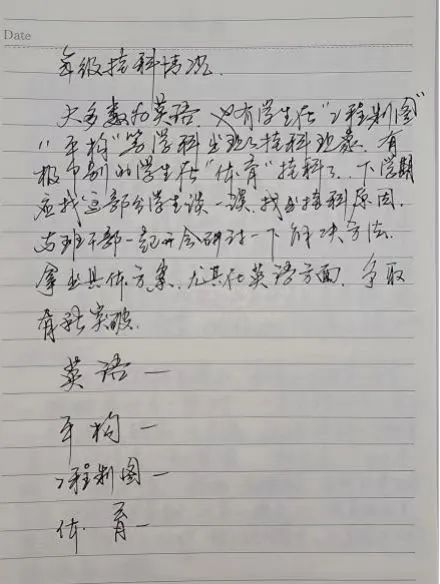 Date
年级挂科情况.
大多数为英语. 也有学生在"工程制图"
"平构"等学科出现了挂科现象. 有
极个别的学生在"体育"挂科了. 下学期
应找这部分学生谈一谈. 找出挂科原因.
与班干部一起开会研讨一下解决方法.
拿出具体方案. 尤其在英语方面. 争取
有所突破.
英语 —
平构 —
工程制图 —
体育 —